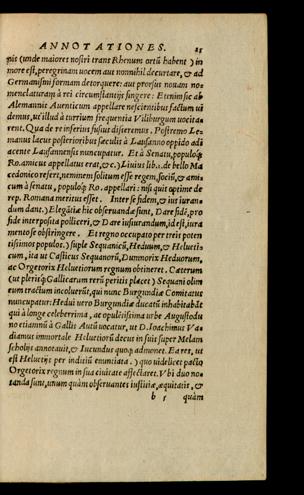 ANNOTATIONES. 25
pis (unde maiores nostri trans Rhenum ortū habent) in
more est, peregrinam vocem aut nonnihil decurtare, & ad
Germanismi formam detorquere: aut prorsus novam no-
menclaturam à rei circumstantijs fingere: Etenim sic ab
Alemannis Aventicum appellare nescientibus factum vi
demus, ut illud à turrium frequentia Viliburgum vocita
rent. Qua de re inferius fusius disseremus. Postremo Le-
manus lacus posterioribus seculis à Lausanno oppido adi
acente Lausannensis nuncupatur. Et à Senatu, populoq́;
Ro. amicus appellatus erat, &c.) Livius lib. de bello Ma
cedonico refert, neminem solitum esse regem, sociū, & ami
cum à senatu, populoq́; Ro. appellari: nisi quit optime de
rep. Romana meritus esset. Inter se fidem, & ius iuran-
dum dant.) Elegātiæ hic observandæ sunt, Dare fidē, pro
fide interposita polliceri, & Dare iusiurandum, id est, iura
mento se obstringere. Et regno occupato per treis poten
tissimos populos.) suple Sequanicū, Heduum, & Helveti-
cum, ita ut Casticus Sequanorū, Dumnorix Heduorum,
ac Orgetorix Helvetiorum regnum obtineret. Cæterum
(ut pleriq́; Gallicarum rerū peritis placet) Sequani olim
eum tractum incoluerūt, qui nunc Burgundiæ Comitatus
nuncupatur: Hedui vero Burgundiæ ducatū inhabitabāt
qui à longe celeberrima, ac opulētissima urbe Augustodu
no etiamnū à Gallis Autū vocatur, ut D. Ioachimus Va
dianus immortale Helvetiorū decus in suis super Melam
scholijs annotavit, & Iucundus quoq́; admonet. Ea res, ut
est Helvetijs per indiciū enuntiata.) quo videlicet pacto
Orgetorix regnum in sua civitate affectaret. Vbi duo no-
tanda sunt, unum quàm observantes iustitiæ, æquitatis, &
b 5 quàm